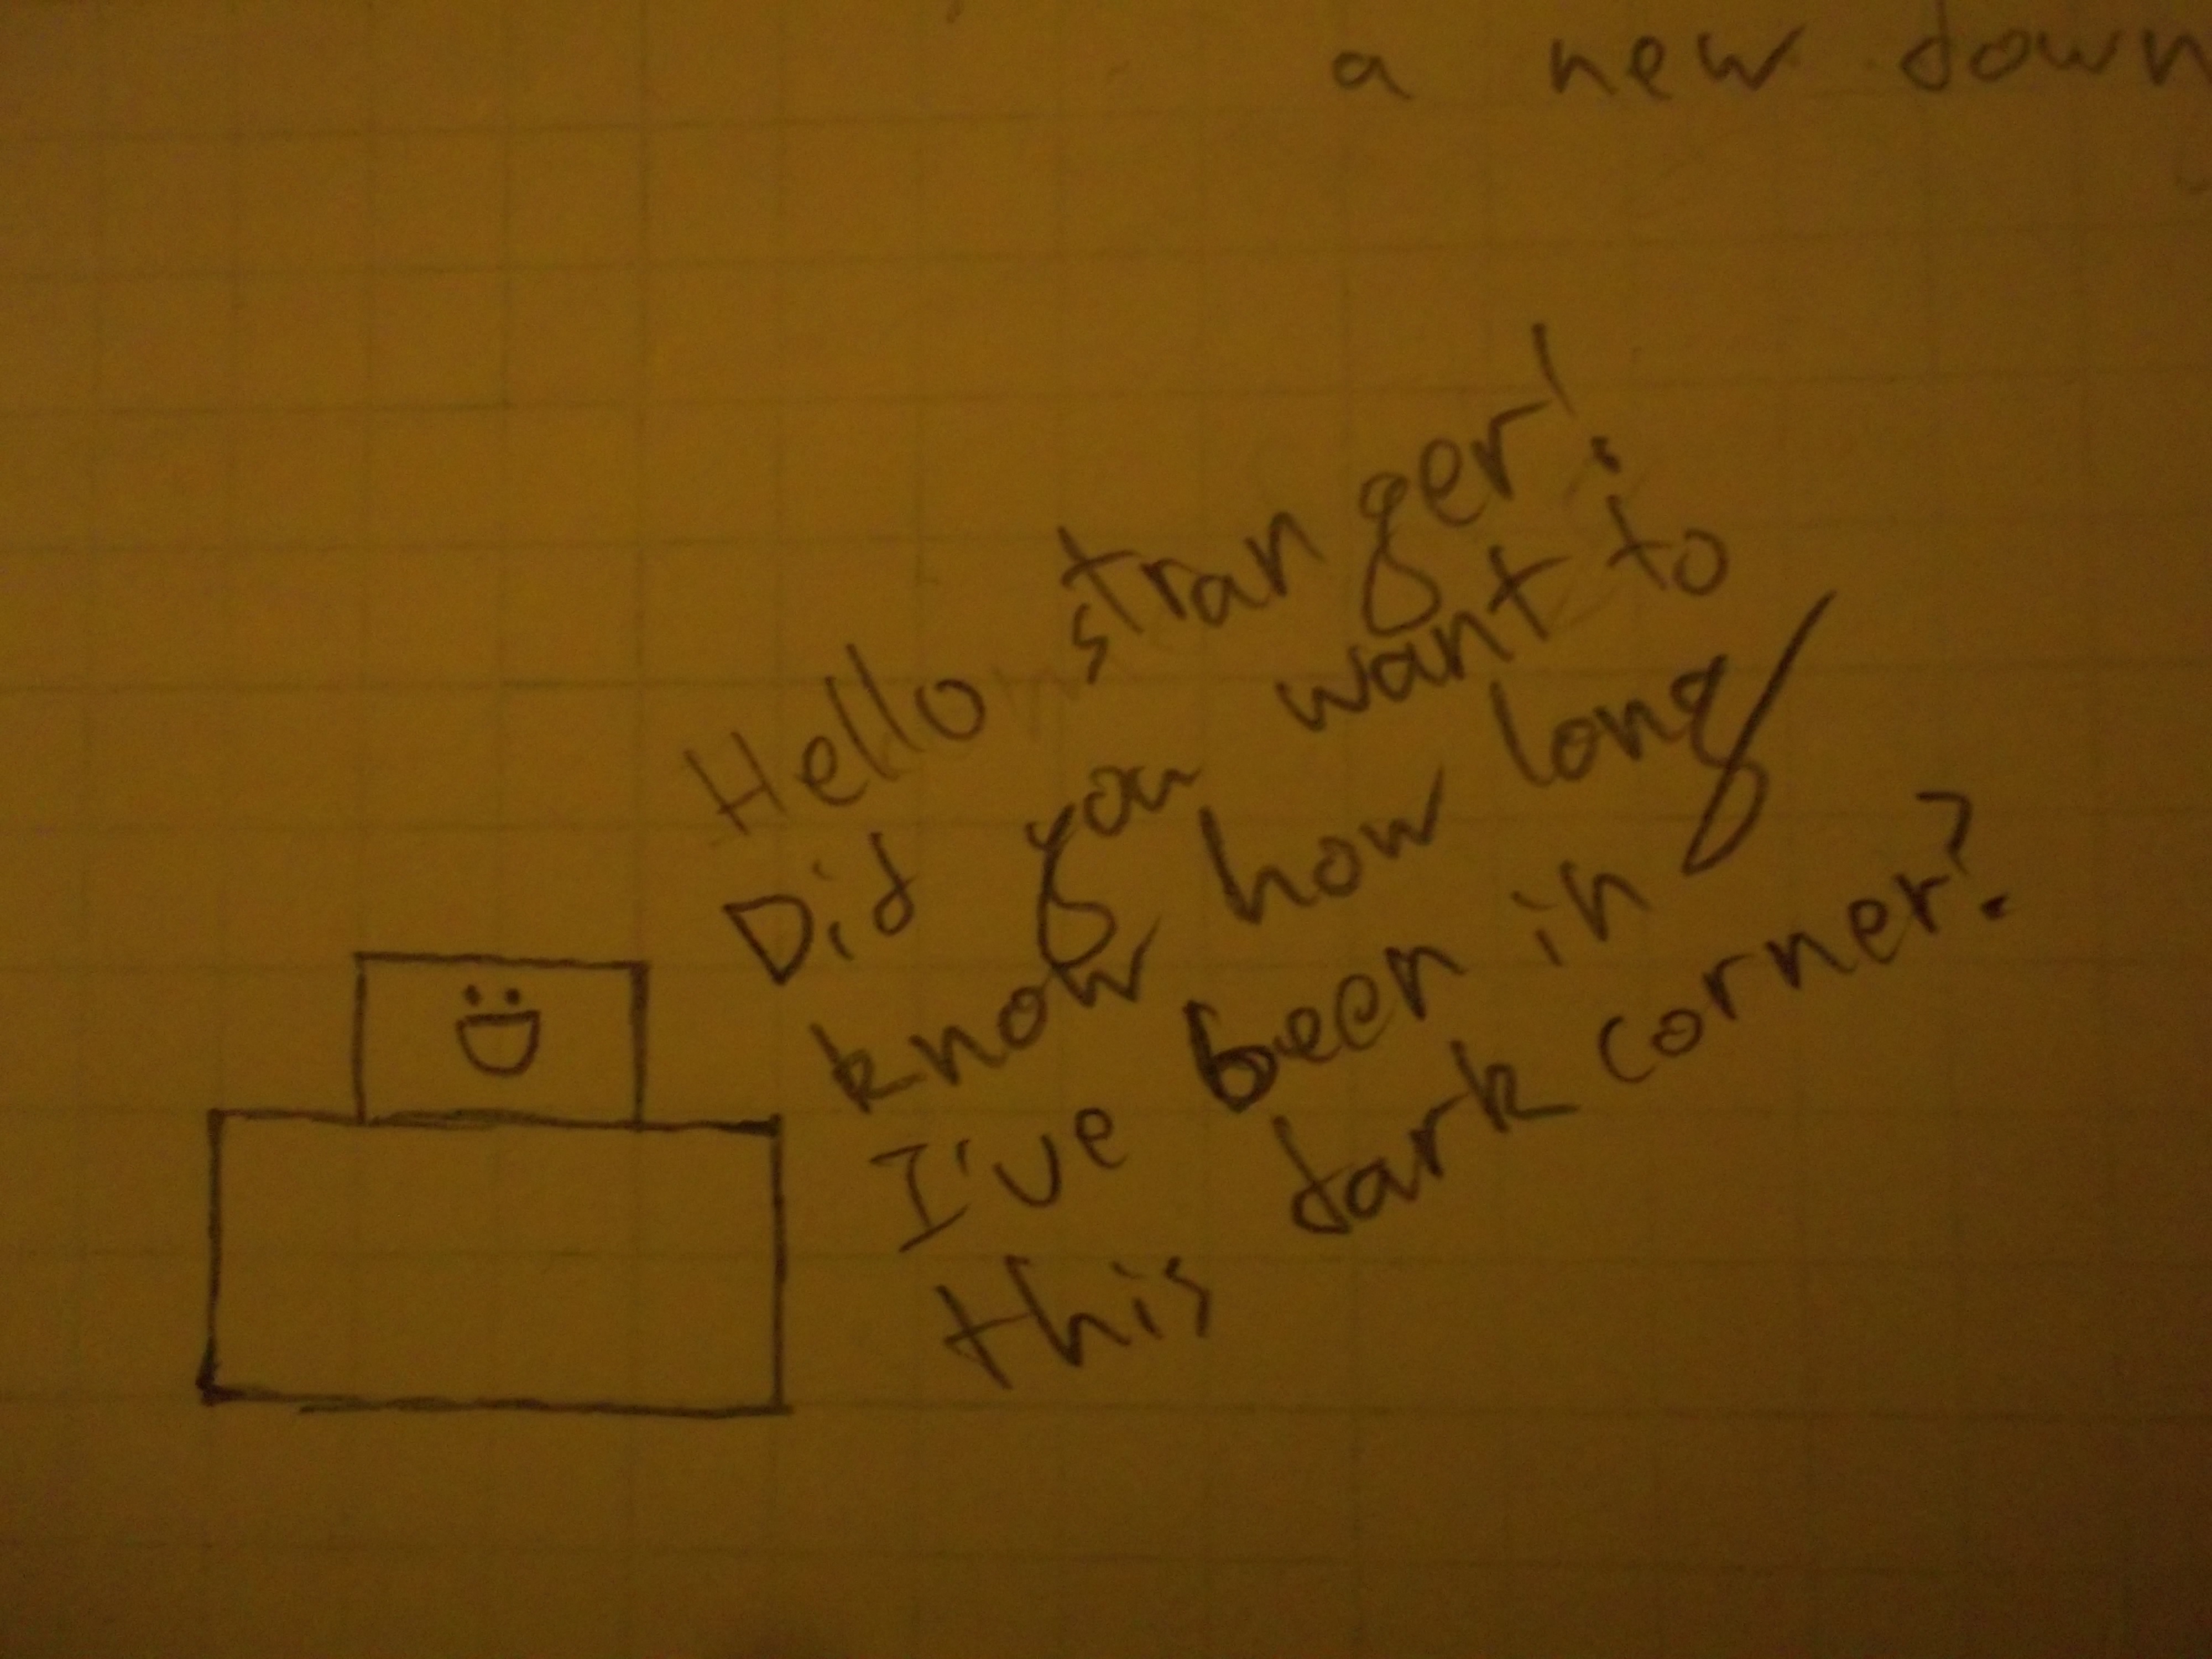 a new down
Hello stranger!
Did you want to
know how long
I've been in
this dark corner?